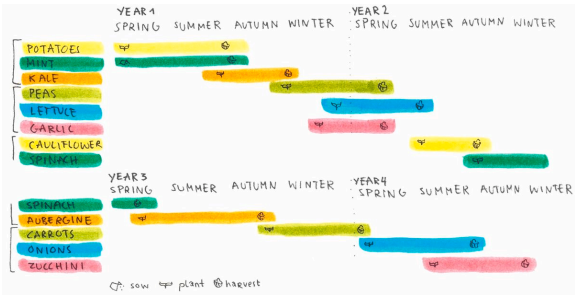 YEAR 1 YEAR 2
SPRING SUMMER AUTUMN WINTER SPRING SUMMER AUTUMN WINTER
POTATOES
MINT
KALE
PEAS
LETTUCE
GARLIC
CAULIFLOWER
SPINACH
YEAR 3 YEAR 4
SPRING SUMMER AUTUMN WINTER SPRING SUMMER AUTUMN WINTER
SPINACH
AUBERGINE
CARROTS
ONIONS
ZUCCHINI
: sow plant harvest